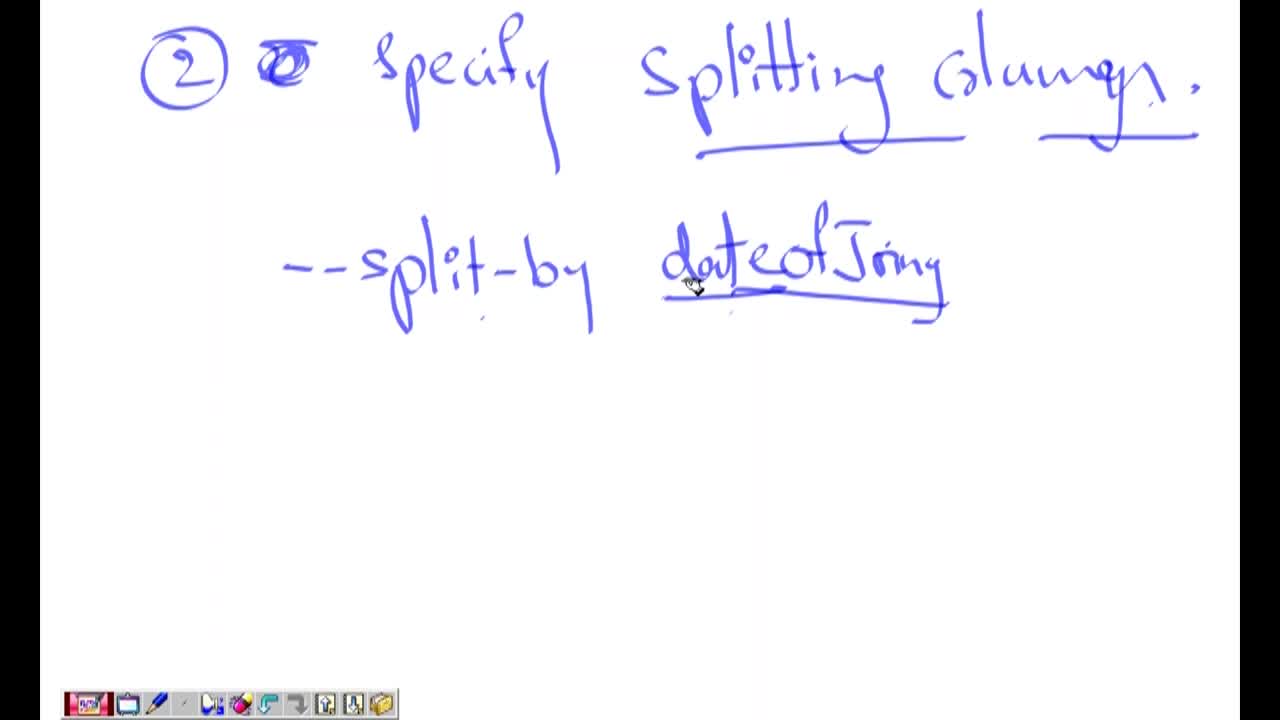 ② specify splitting columns.
--split-by dateofJoing